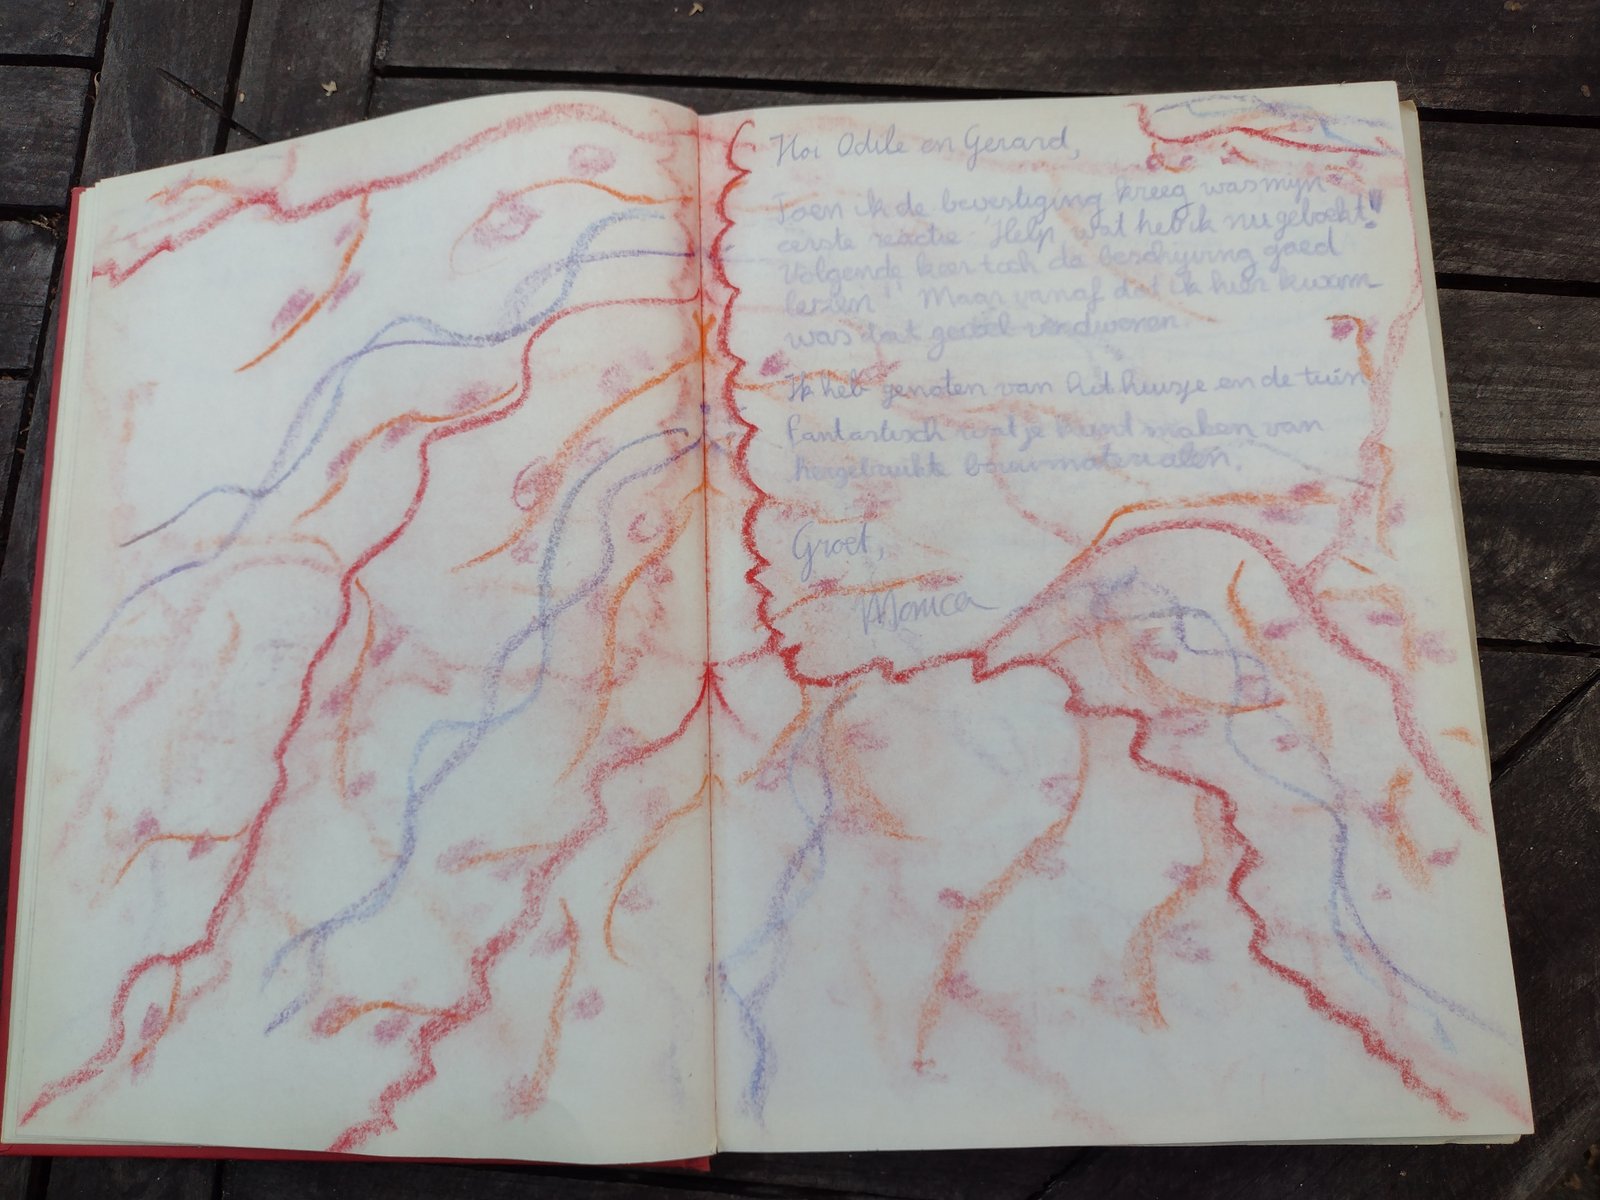 Hoi Odile en Gerard,
Toen ik de bevestiging kreeg was mijn
eerste reactie: Help, wat heb ik nu geboekt!
Volgende keer toch de beschrijving goed
lezen!! Maar vanaf dat ik hier kwam
was dat gevoel verdwenen.
Ik heb genoten van het huisje en de tuin
Fantastisch wat je kunt maken van
hergebruikte bouwmaterialen.
Groet,
Monica